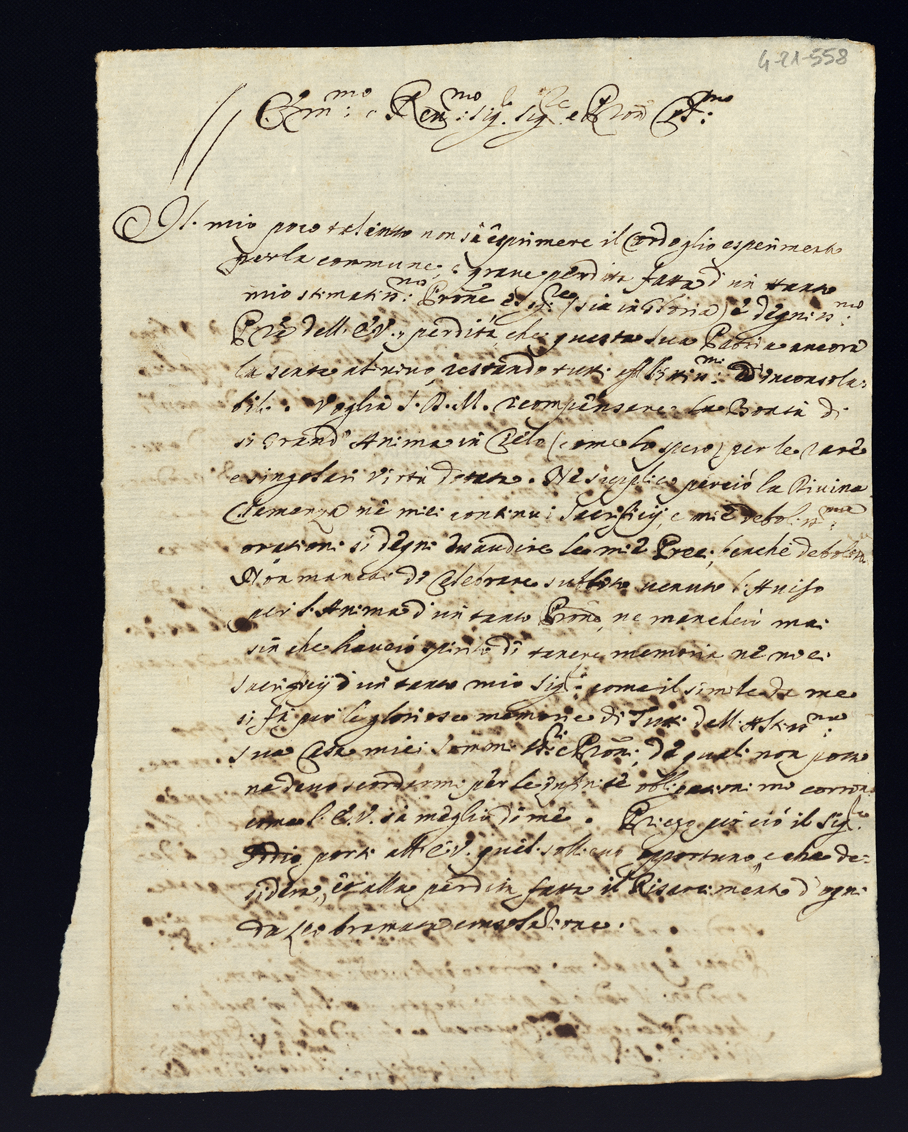 4-21-558
Em.mo e Ren.mo Sig.r Sig.re e Pron
Il mio poco talento non sà esprimere il Cordoglio esperimentato
per la commune, e grave perdita fatta d'un tanto
mio stimatiss.mo Prone e Sig.re (sia in Gloria) e degniss.mo
Pre dell'E.V., perdita, che questa sua Patria ancora
la sente al vivo, restando tutti afflittiss.mi d'inconsola-
bili. Voglia S.D.M. recompensare la Bontà di
si Grand'Anima in Cielo (come lo spero) per le rare
e singolari Virtù dotata. Ne supplico perciò la Divina
Clemenza nè miei continui Sacrificij e mie deboliss.me
orationi si degni esaudire le mie Preci, benchè deboliss.
Non mancai di Celebrare subbito venuto l'Aviso
per l'Anima d'un tanto Prone, ne mancherò mai
sin che haverò spirito di tenere memoria nè miei
Sacrificij d'un tanto mio Sig.re come il simile da me
si fà per le gloriose memorie di Tutti dell'Ill.ma
sua Casa miei Sommi e Proni, de quali non posso
ne devo scordarmi per le infinite obligationi mi corrono
come l'E.V. sa meglio di me. Priego perciò il Sig.re
Iddio porti all'E.V. quel sollievo opportuno, che de-
sidera, et alla perdita fatta il Risarcimento d'ogni
da Lei bramata consolatione.